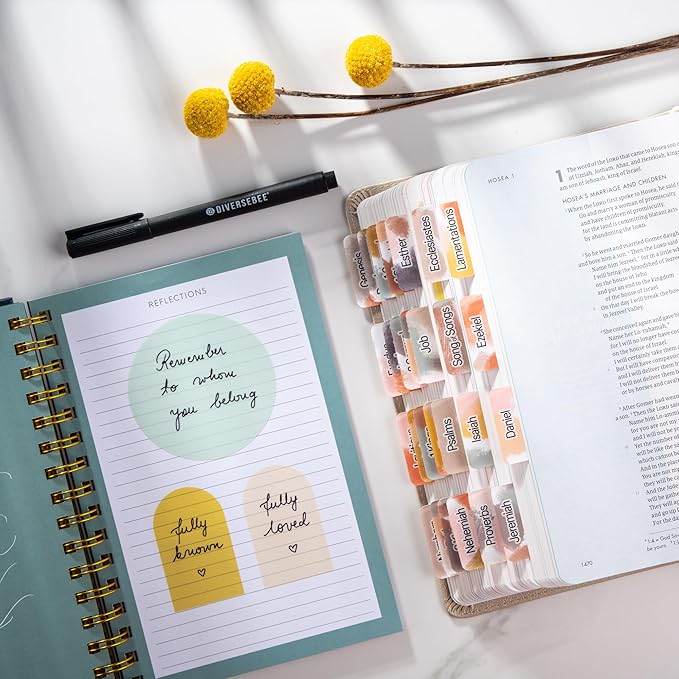 DIVERSEBEE
REFLECTIONS
Remember
to whom
you belong
fully
known
fully
loved
Genesis
Esther
Ecclesiastes
Lamentations
Job
Song of Songs
Ezekiel
Psalms
Isaiah
Daniel
Nehemiah
Proverbs
Jeremiah
HOSEA 1
1 The word of the LORD that came to Hosea son
of Uzziah, Jotham, Ahaz, and Hezekiah, kings
am son of Jehoash, king of Israel.
HOSEA'S MARRIAGE AND CHILDREN
When the LORD first spoke to Hosea, he said
Go and marry a woman of promiscuity,
and have children of promiscuity,
for the land is committing blatant acts
by abandoning the LORD.
So he went and married Gomer daug
and bore him a son. Then the LORD said
Name him Jezreel, for in a little wh
I will bring the bloodshed of Jezreel
on the house of Jehu
and put an end to the kingdom
of the house of Israel.
On that day I will break the bow
in Jezreel Valley.
She conceived again and gave
Name her Lo-ruhamah,
for I will no longer have
on the house of Israel.
I will certainly take them
But I will have compassion
I will not deliver them
or by horses and cavalr
After Gomer had wean
a son. Then the LORD said
Name him Lo-ammi,
for you are not my
and I will not be y
Yet the number of
will be like the sa
which cannot be
And in the place
You are not my
they will be call
And the
will be gathere
and go up
For the da
1470
1:4 = God Sow
be yours.